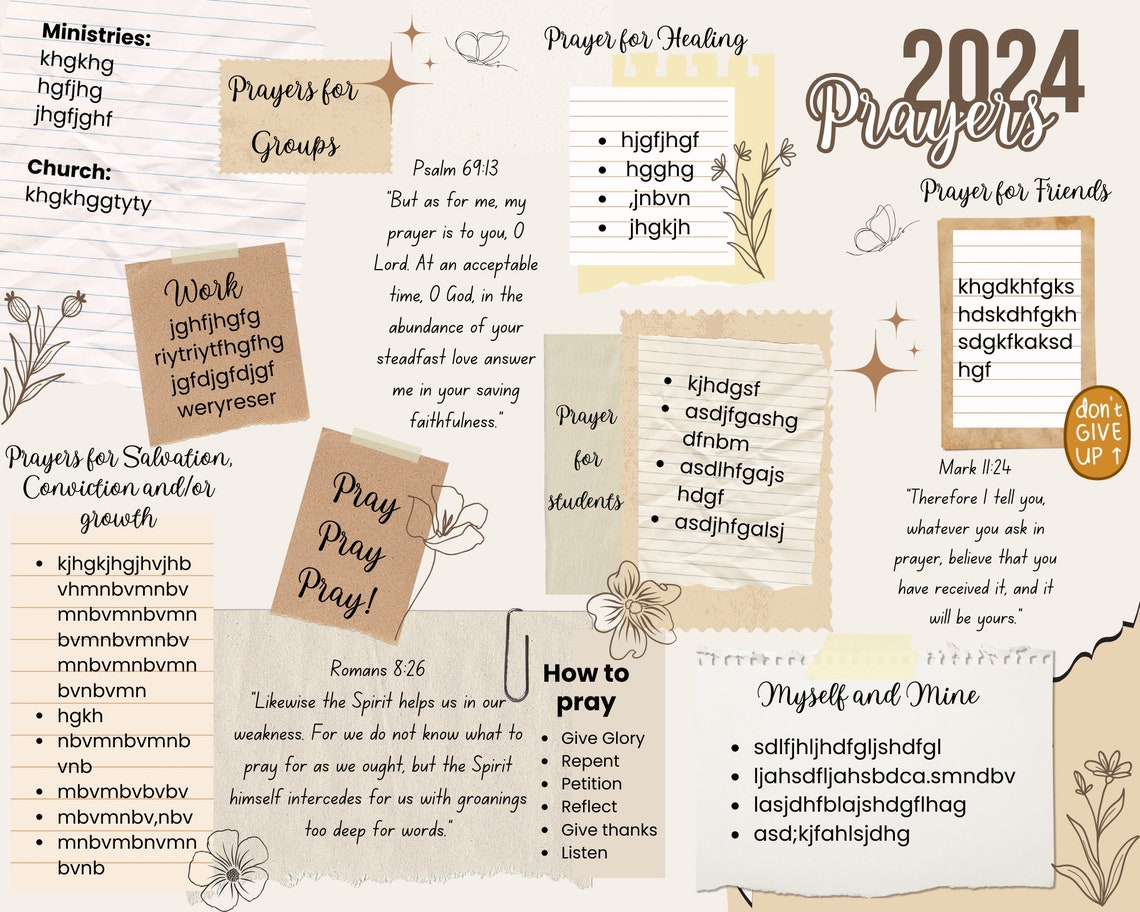 Ministries:
khgkhg
hgfjhg
jhgfjghf
Church:
khgkhggtyty
Prayers for
Groups
Work
jghfjhgfg
riytriytfhgfhg
jgfdjgfdjgf
weryreser
Psalm 69:13
"But as for me, my
prayer is to you, O
Lord. At an acceptable
time, O God, in the
abundance of your
steadfast love answer
me in your saving
faithfulness."
Prayer for Healing
• hjgfjhgf
• hgghg
• ,jnbvn
• jhgkjh
2024
Prayers
Prayer for Friends
khgdkhfgks
hdskdhfgkh
sdgkfkaksd
hgf
don't
GIVE
UP ↑
Mark 11:24
"Therefore I tell you,
whatever you ask in
prayer, believe that you
have received it, and it
will be yours."
Prayer
for
students
• kjhdgsf
• asdjfgashg
dfnbm
• asdlhfgajs
hdgf
• asdjhfgalsj
Prayers for Salvation,
Conviction and/or
growth
• kjhgkjhgjhvjhb
vhmnbvmnbv
mnbvmnbvmn
bvmnbvmnbv
mnbvmnbvmn
bvnbvmn
• hgkh
• nbvmnbvmnb
vnb
• mbvmbvbvbv
• mbvmnbv,nbv
• mnbvmbnvmn
bvnb
Pray
Pray
Pray!
Romans 8:26
"Likewise the Spirit helps us in our
weakness. For we do not know what to
pray for as we ought, but the Spirit
himself intercedes for us with groanings
too deep for words."
How to
pray
• Give Glory
• Repent
• Petition
• Reflect
• Give thanks
• Listen
Myself and Mine
• sdlfjhljhdfgljshdfgl
• ljahsdfljahsbdca.smndbv
• lasjdhfblajshdgflhag
• asd;kjfahlsjdhg